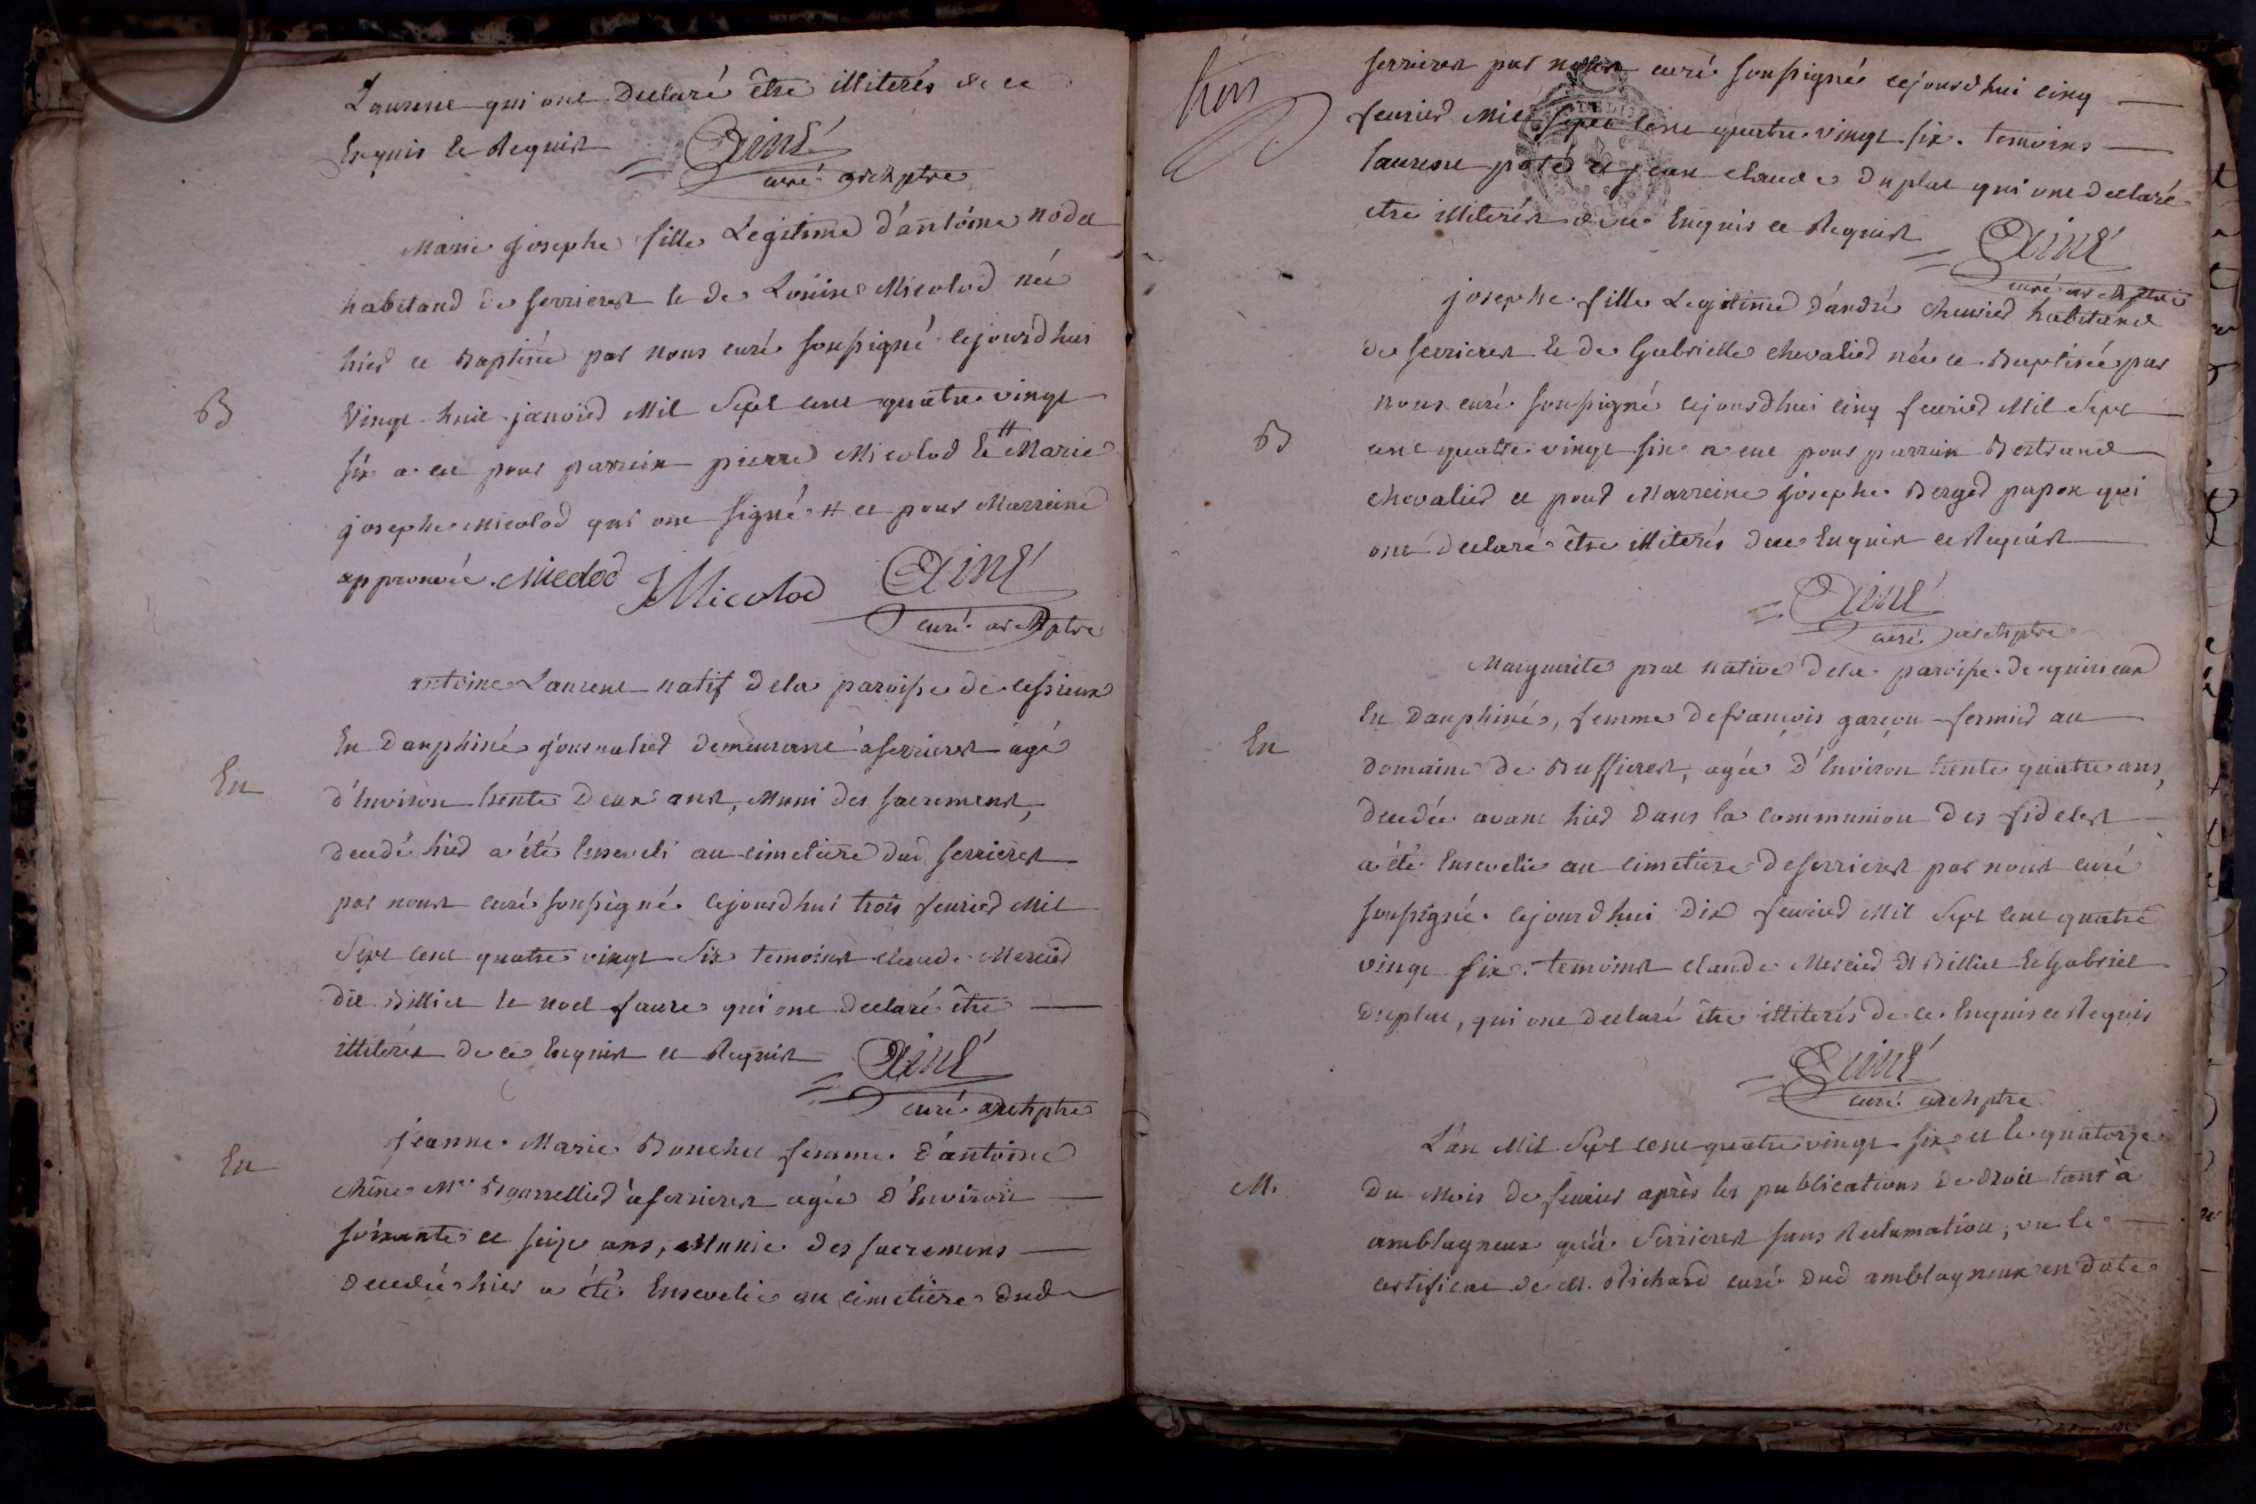 Laurent qui ont Declaré être illiterés de ce
Enquis et Requis
Ainé
curé archptre
Marie josephe fille Legitime d'antoine nodet
habitand de serrieres et de Louise Micolod née
hier et Baptisée par nous curé soussigné cejourdhui
B
Vingt huit janvier Mil Sept cent quatre vingt
six a eu pour parrein pierre Micolod et # Marie
josephe Micolod qui ont signé # et pour Marreine
approuvé. Micolod JMicolod Ainé
curé archptre
antoine Laurent natif dela paroisse de cessieux
En Dauphiné journalier demeurant a serrieres agé
En
d'Environ trente Deux ans, Muni des sacremens,
decedé hier a été Enseveli au cimetiere dud serrieres
par nous curé soussigné cejourdhui trois fevrier Mil
Sept cent quatre vingt Six temoins claude Mercier
dit Billiet et noel faure qui ont declaré être
illiterés de ce Enquis et Requis
Ainé
curé archptre
jeanne Marie Bouchet femme d'antoine
En
chêne Me Bourrellier a serrieres agée d'Environ
soixante et seize ans, Munie des sacremens
decedée hier a été Ensevelie au cimetiere dud
serrieres par nous curé soussigné cejourdhui cinq
fevrier Mil Sept Cent quatre vingt six. temoins
laurent et jean claude Duplat qui ont declaré
etre illiterés de ce Enquis et Requis
Ainé
curé archptre
josephe fille Legitime d'andré chevrier habitand
de serrieres et de Gabrielle chevalier née et Baptisée par
nous curé soussigné cejourdhui cinq fevrier Mil Sept
B
cent quatre vingt six a eu pour parrain Bertrand
chevalier et pour Marreine josephe Berger papon qui
ont declaré être illiterés de ce Enquis et Requis
Ainé
curé archptre
Marguerite prat native dela paroisse de quirieux
En Dauphiné, femme de françois garçon fermier au
En
domaine de Buffieres, agée d'Environ trente quatre ans,
decedée avant hier Dans la communion Des fideles
a été Ensevelie au cimetiere de serrieres par nous curé
soussigné cejourdhui Dix fevrier Mil Sept cent quatre
vingt six. temoins claude Mercier dt Billiet et Gabriel
Duplat, qui ont declaré être illiterés de ce Enquis et Requis
Ainé
curé archptre
L'an Mil Sept cent quatre vingt six et le quatorze
M.
Du Mois de fevrier après les publications de Droit tant à
amblagneux qu'à Serrieres sans Reclamation, vu le
certificat de M. Richard curé dud amblagneux en date